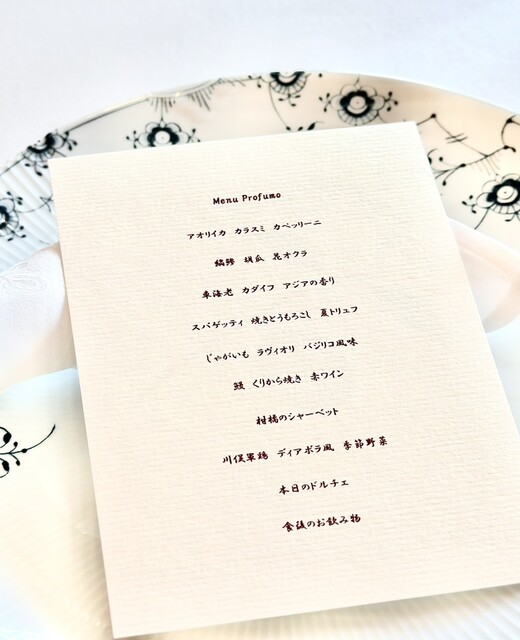 Menu Profumo
アオリイカ カラスミ カペッリーニ
縞鯵 胡瓜 花オクラ
車海老 カダイフ アジアの香り
スパゲッティ 焼きとうもろこし 夏トリュフ
じゃがいも ラヴィオリ バジリコ風味
鰻 くりから焼き 赤ワイン
柑橘のシャーベット
川俣軍鶏 ディアボラ風 季節野菜
本日のドルチェ
食後のお飲み物